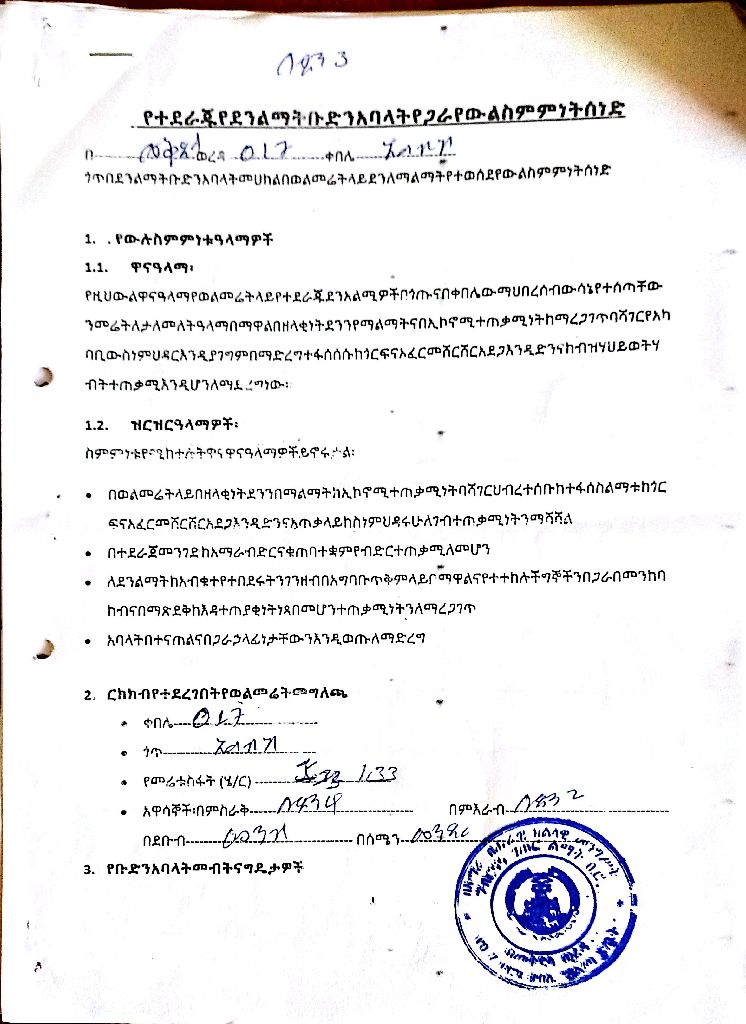 ለዳን 3
የተደራጁየደንልማትቡድንአባላትየጋራየውልስምምነትሰነድ
በ ወረዳ 017 ቀበሌ
ጎጥበደንልማትቡድንአባላትመሀከልበወልመሬትላይደንለማልማትየተወሰደየውልስምምነትሰነድ
1. . የውሉስምምነቱዓላማዎች
1.1. ዋናዓላማ፡
የዚህውልዋናዓላማየወልመሬትላይየተደራጁደንአልሚዎችቦጎጡናበቀበሌውማህበረሰብውሳኔየተሰጣቸው
ንመሬትለታለመለትዓላማበማዋልበዘላቂነትደንንየማልማትናበኢኮኖሚተጠቃሚነትከማረጋገጥባሻገርየአካ
ባቢውስነምህዳርእንዲያገግምበማድረግተፋሰሰሱከጎርፍናአፈርመሸርሸርአደጋእንዲድንናከብዝሃህይወትሃ
ብትተጠቃሚእንዲሆንለማደረግነው፡
1.2. ዝርዝርዓላማዎች፡
ስምምነቱየሚከተሉትዋናዋናዓላማዎችይኖሩታል፡
• በወልመሬትላይበዘላቂነትደንንበማልማትከኢኮኖሚተጠቃሚነትባሻገርህብረተሰቡከተፋሰስልማቱከጎር
ፍናአፈርመሸርሸርአደጋእንዲድንናአጠቃላይከስነምህዳሩሁለገብተጠቃሚነትንማሻሻል
• በተደራጀመንገድከአማራብድርናቁጠባተቋምየብድርተጠቃሚለመሆን
• ለደንልማትከአብቁተየተበደሩትንገንዘብበአግባቡጥቅምላይቦማዋልናየተተከሉችግኞችንበጋራበመንከባ
ከብናበማጽደቅከእዳተጠያቂነትነጻበመሆንተጠቃሚነትንለማረጋገጥ
• አባላትበተናጠልናበጋራኃላፊነታቸውንእንዲወጡለማድረግ
2. ርክክብየተደረገበትየወልመሬትመግለጫ
• ቀበሌ 017
• ጎጥ
• የመሬቱስፋት (ሄ/ር) 1.33
• አዋሳኞች፡በምስራቅ ለዳን4 በምእራብ ለዳን 2
በደቡብ መንገድ በሰሜን መንገድ
3. የቡድንአባላትመብትናግዴታዎች
በአማራ ብሔራዊ ክልላዊ መንግሥት